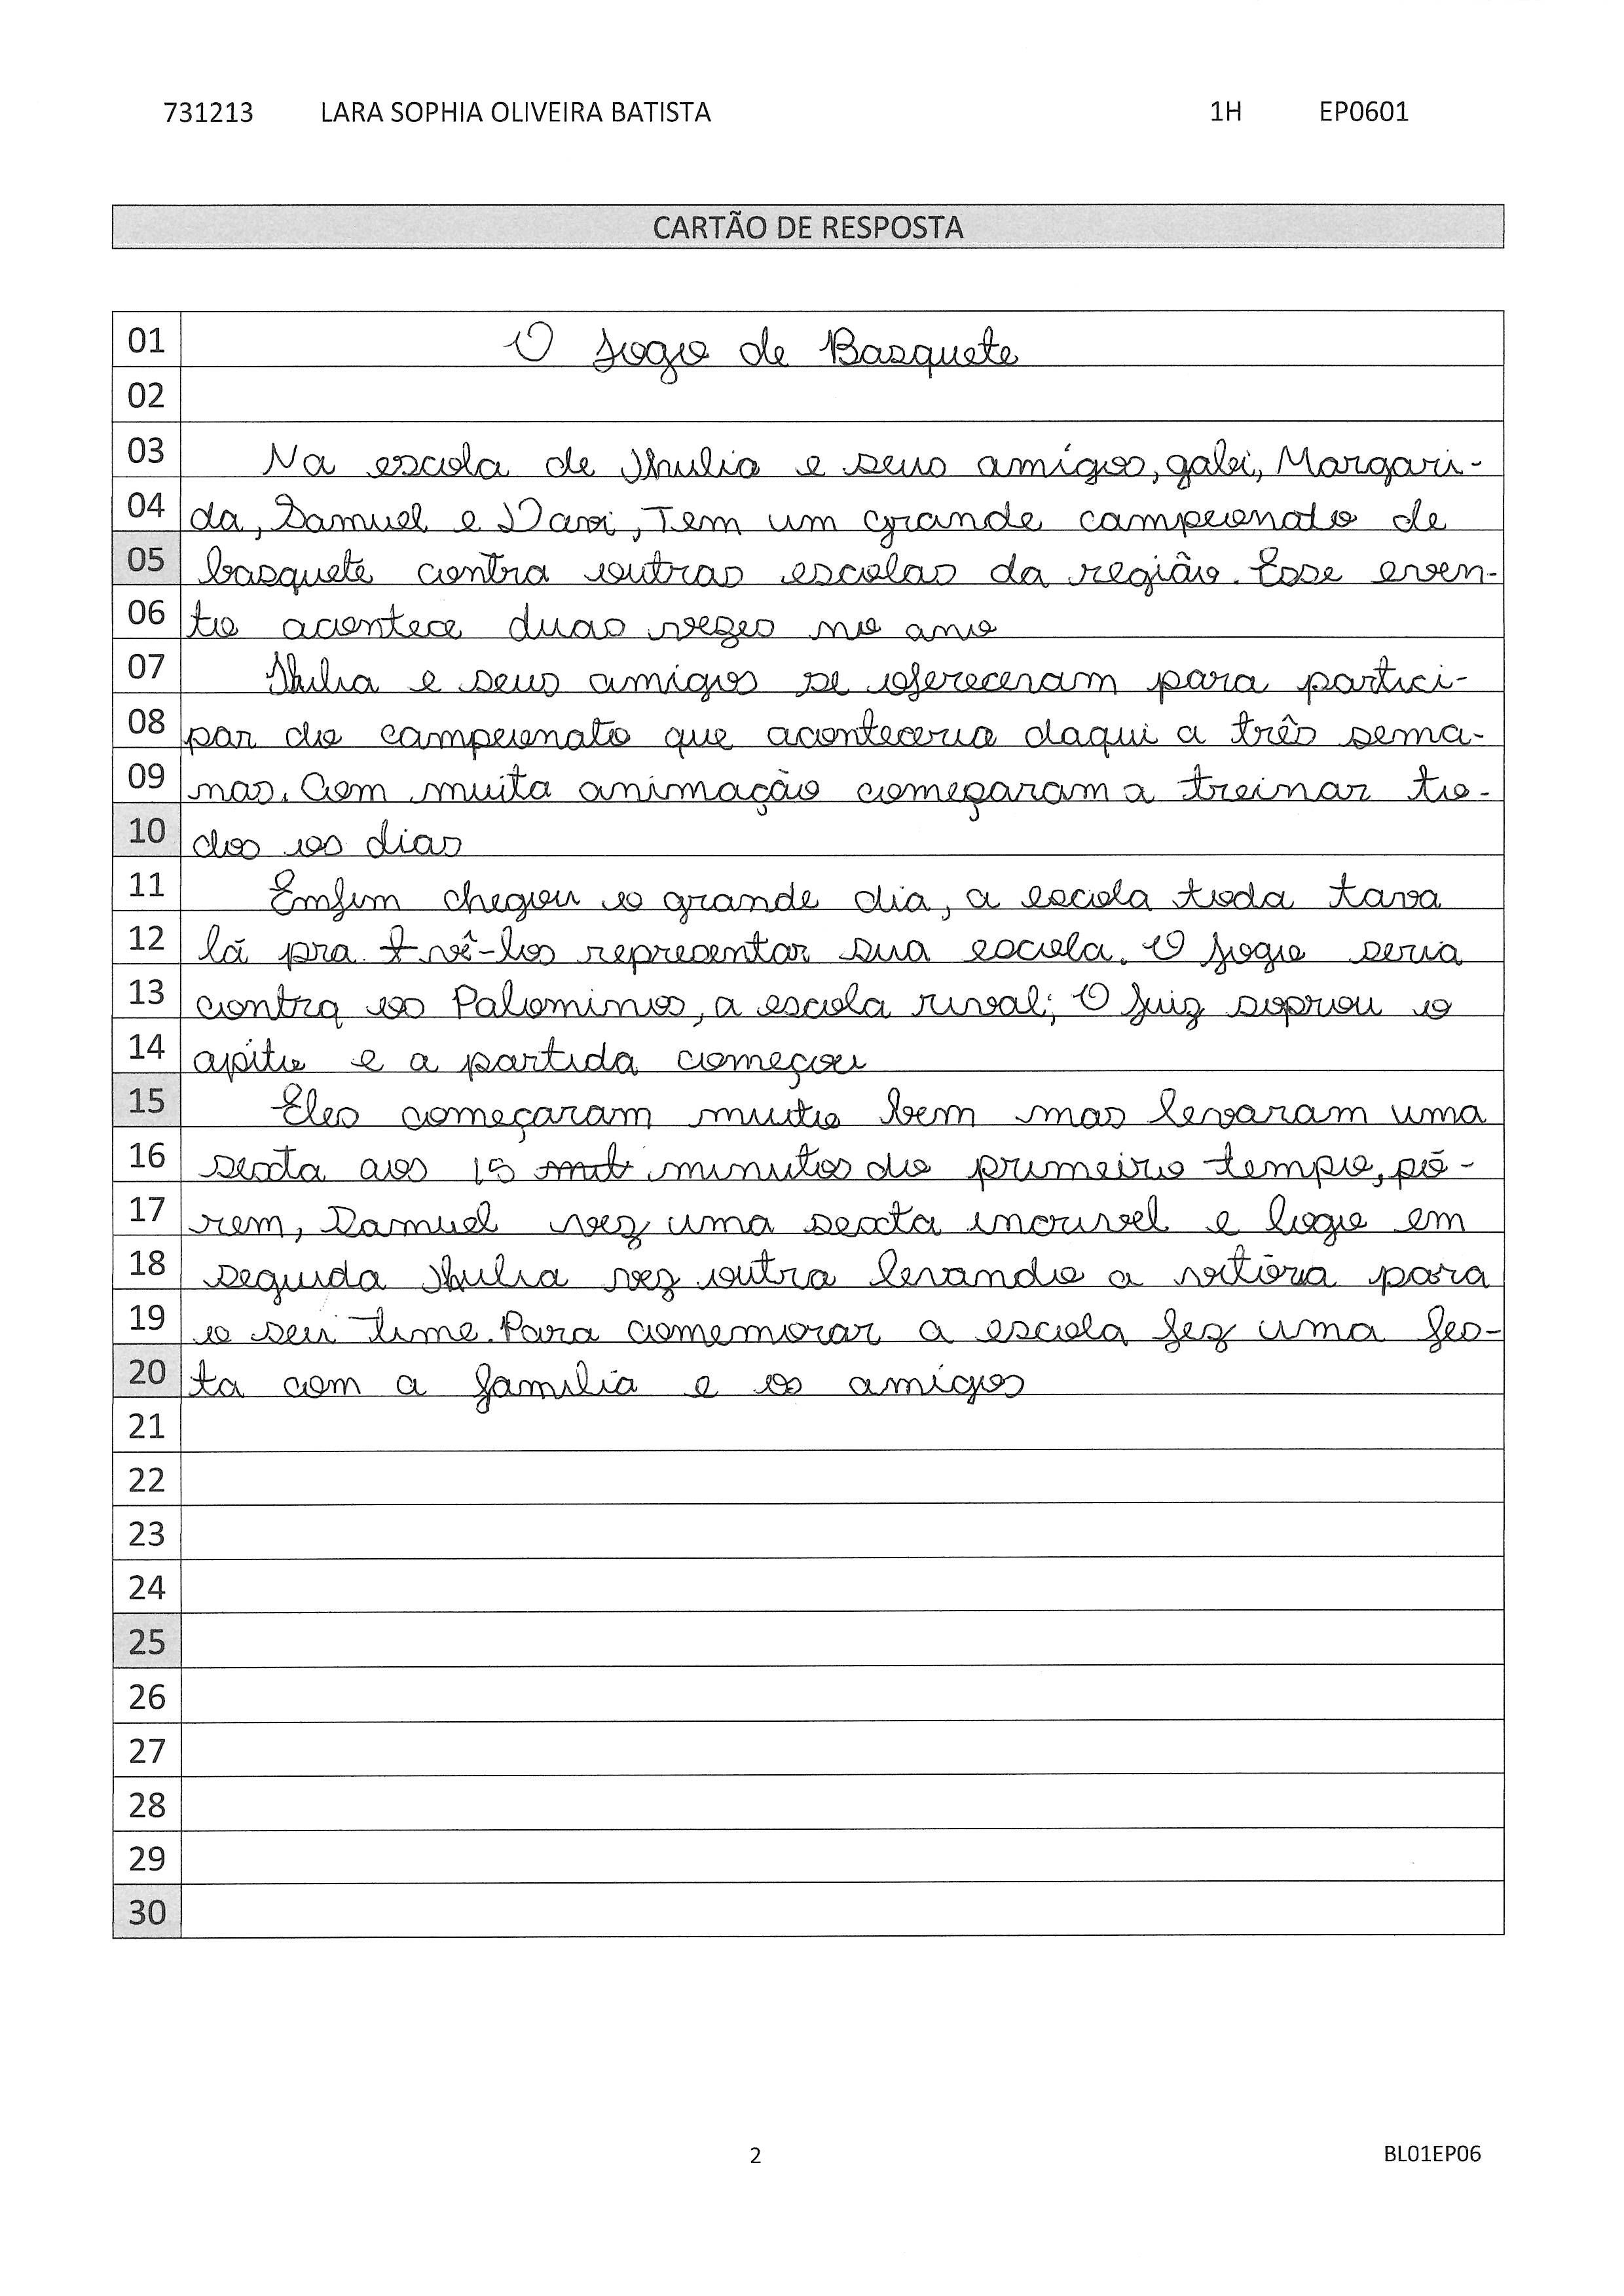 731213 LARA SOPHIA OLIVEIRA BATISTA 1H EP0601
CARTÃO DE RESPOSTA
01 O jogo de Basquete
02
03 Na escola de Jhulia e seus amigos, gabi, Margari-
04 da, Samuel e Davi, Tem um grande campeonato de
05 basquete contra outras escolas da região. Esse even-
06 to acontece duas vezes no ano
07 Jhulia e seus amigos se ofereceram para partici-
08 par do campeonato que aconteceria daqui a três sema-
09 nas. Com muita animação começaram a treinar to-
10 dos os dias
11 Emfim chegou o grande dia, a escola toda tava
12 lá pra vê-los representar sua escola. O jogo seria
13 contra os Palominos, a escola rival; O juiz soprou o
14 apito e a partida começou
15 Eles começaram muito bem mas levaram uma
16 sexta aos 15 minutos do primeiro tempo, pó-
17 rem, Samuel vez uma sexta incrivel e logo em
18 seguida Jhulia vez outra levando a vitória para
19 o seu time. Para comemorar a escola fez uma fes-
20 ta com a familia e os amigos
21
22
23
24
25
26
27
28
29
30
2 BL01EP06